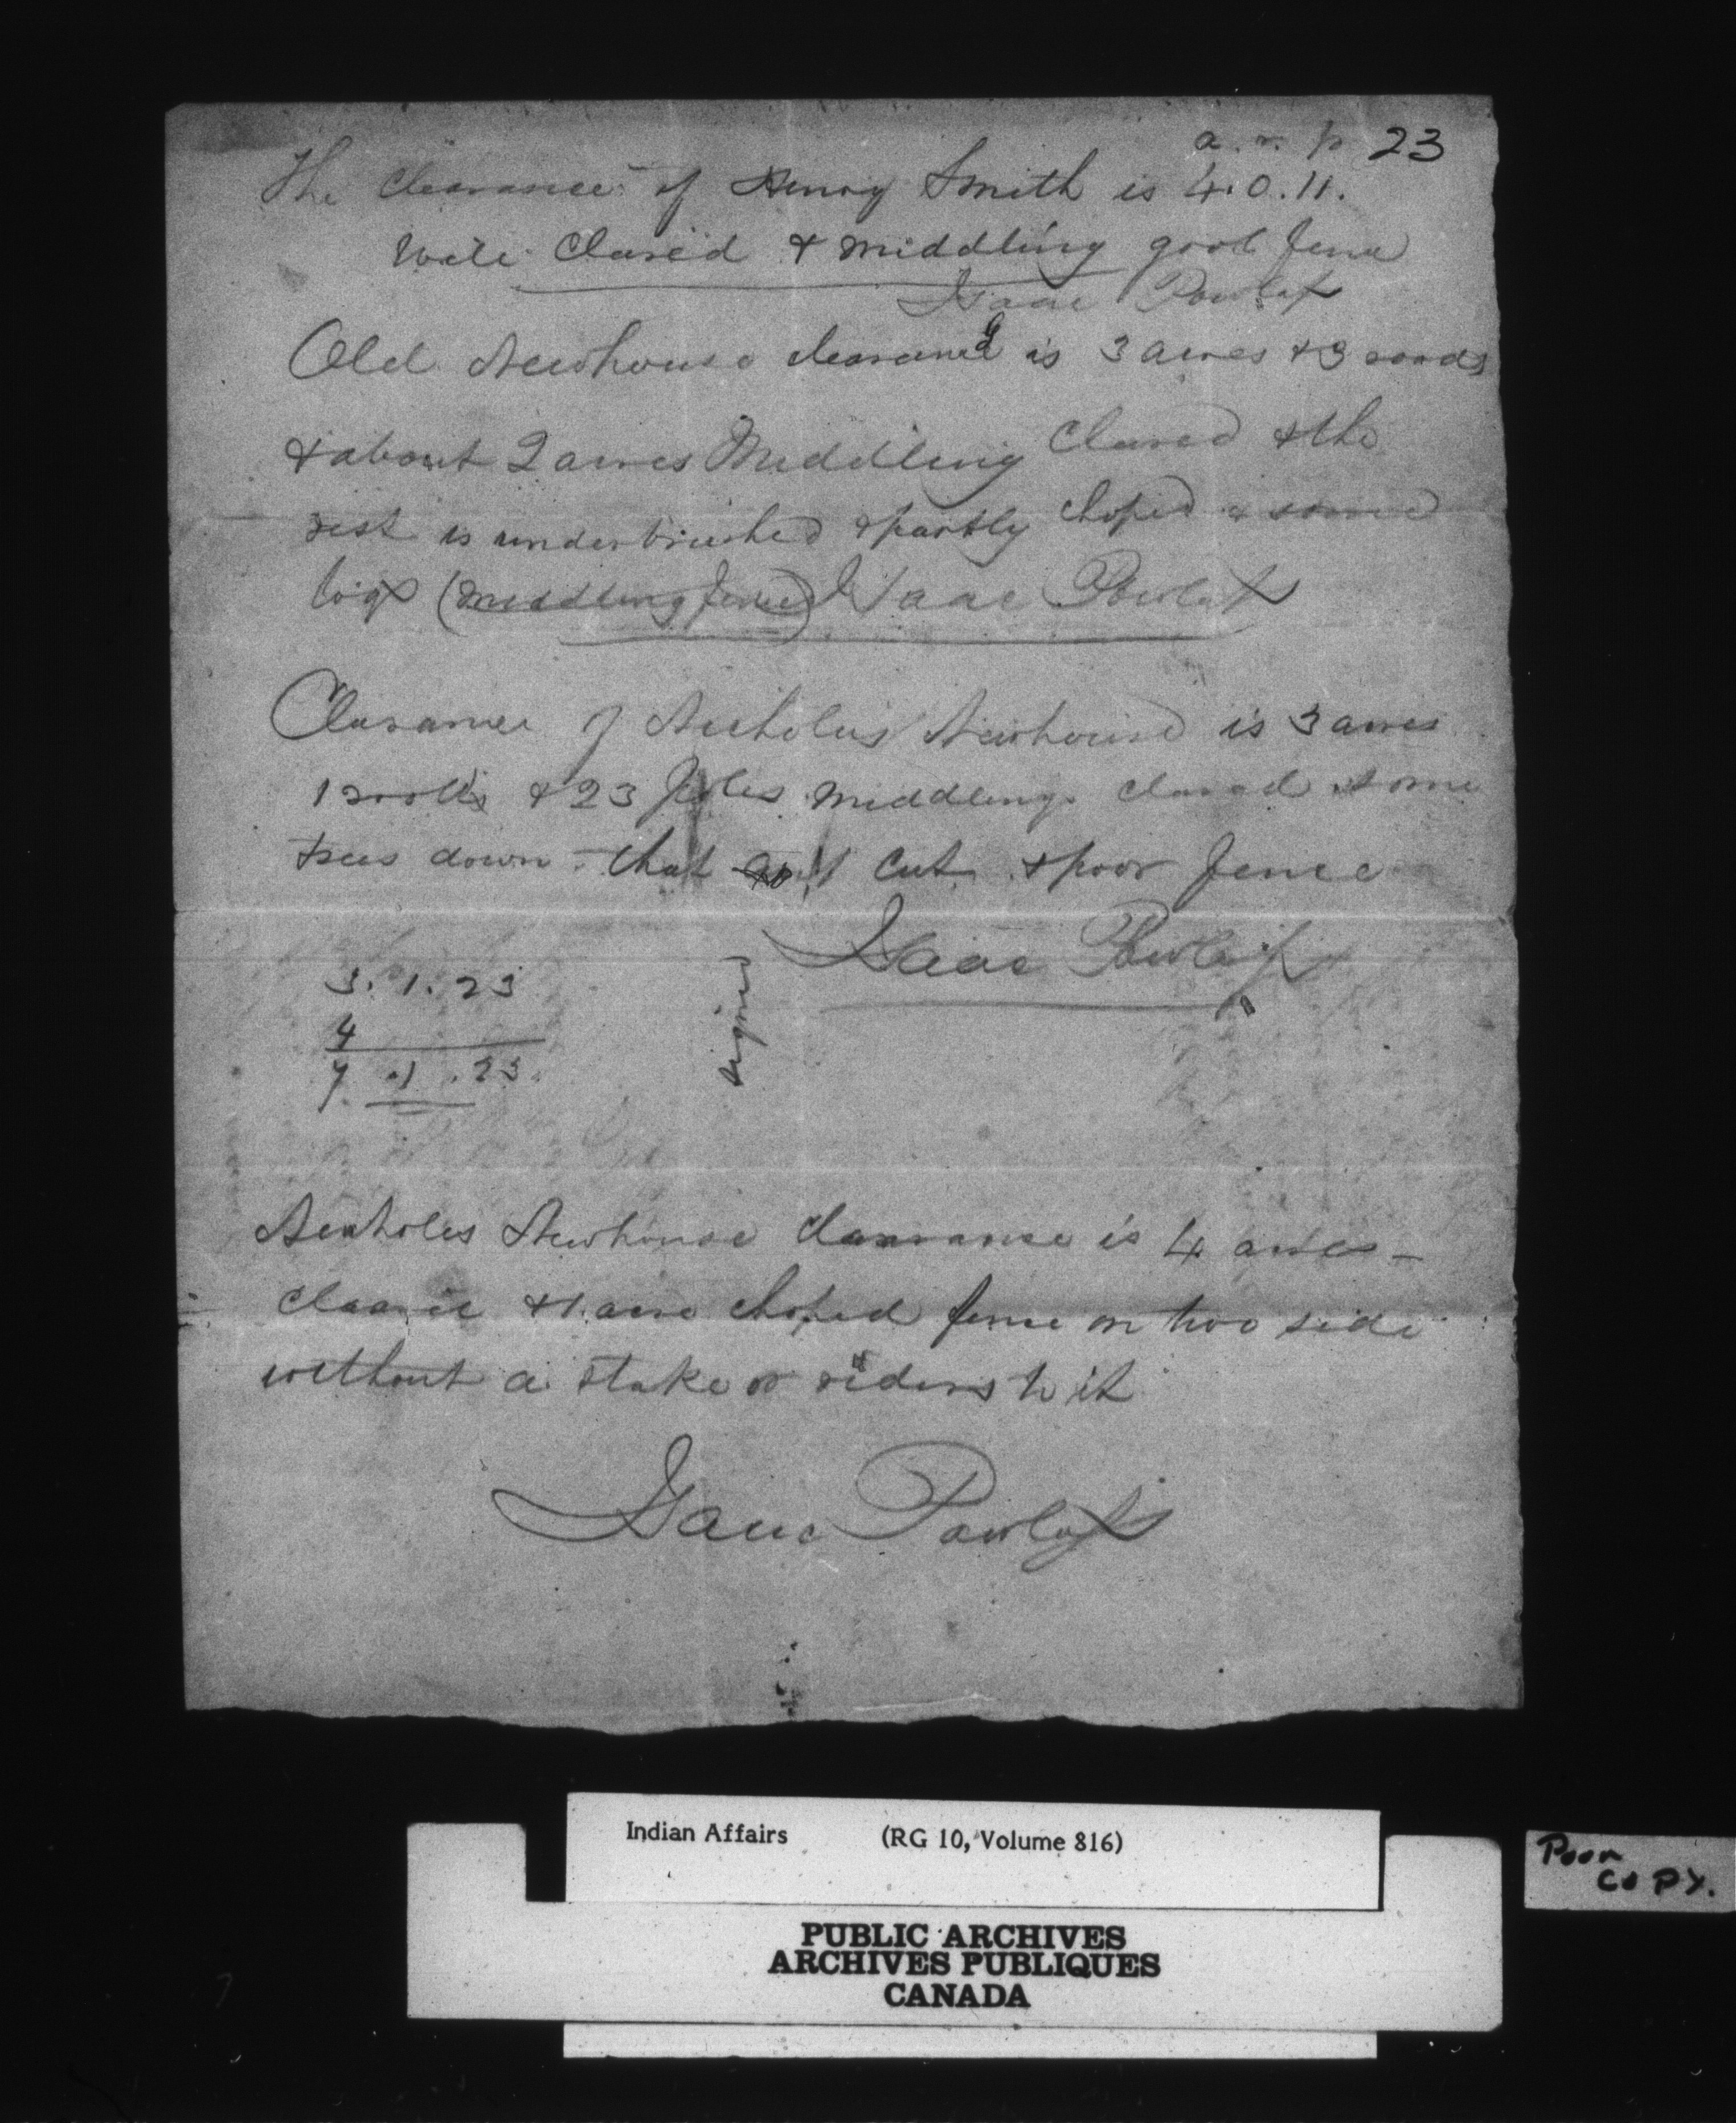 a. r. p 23
The Clearance of Henry Smith is 4.0.11.
Well Clared & middling good fence
Isaac Powlas
Old Newhouse clearance is 3 acres & 3 roods
& about 2 acres Middling Clared & the
rest is underbrushed & partly choped & some
logs (middling fence) Isaac Powlas
Clearance of Nicholus Newhouse is 3 acres
1 rood & 23 Poles middling clared some
trees down that cut & poor fence
Isaac Powlas
signed
3. 1. 23
4
7 .1 .23
Nicholes Newhouse clearanse is 4 acres -
& 1 acre choped fence on two side
without a stake or riders to it
Isaac Powlas
Indian Affairs (RG 10, Volume 816)
PUBLIC ARCHIVES
ARCHIVES PUBLIQUES
CANADA
Poor
COPY.